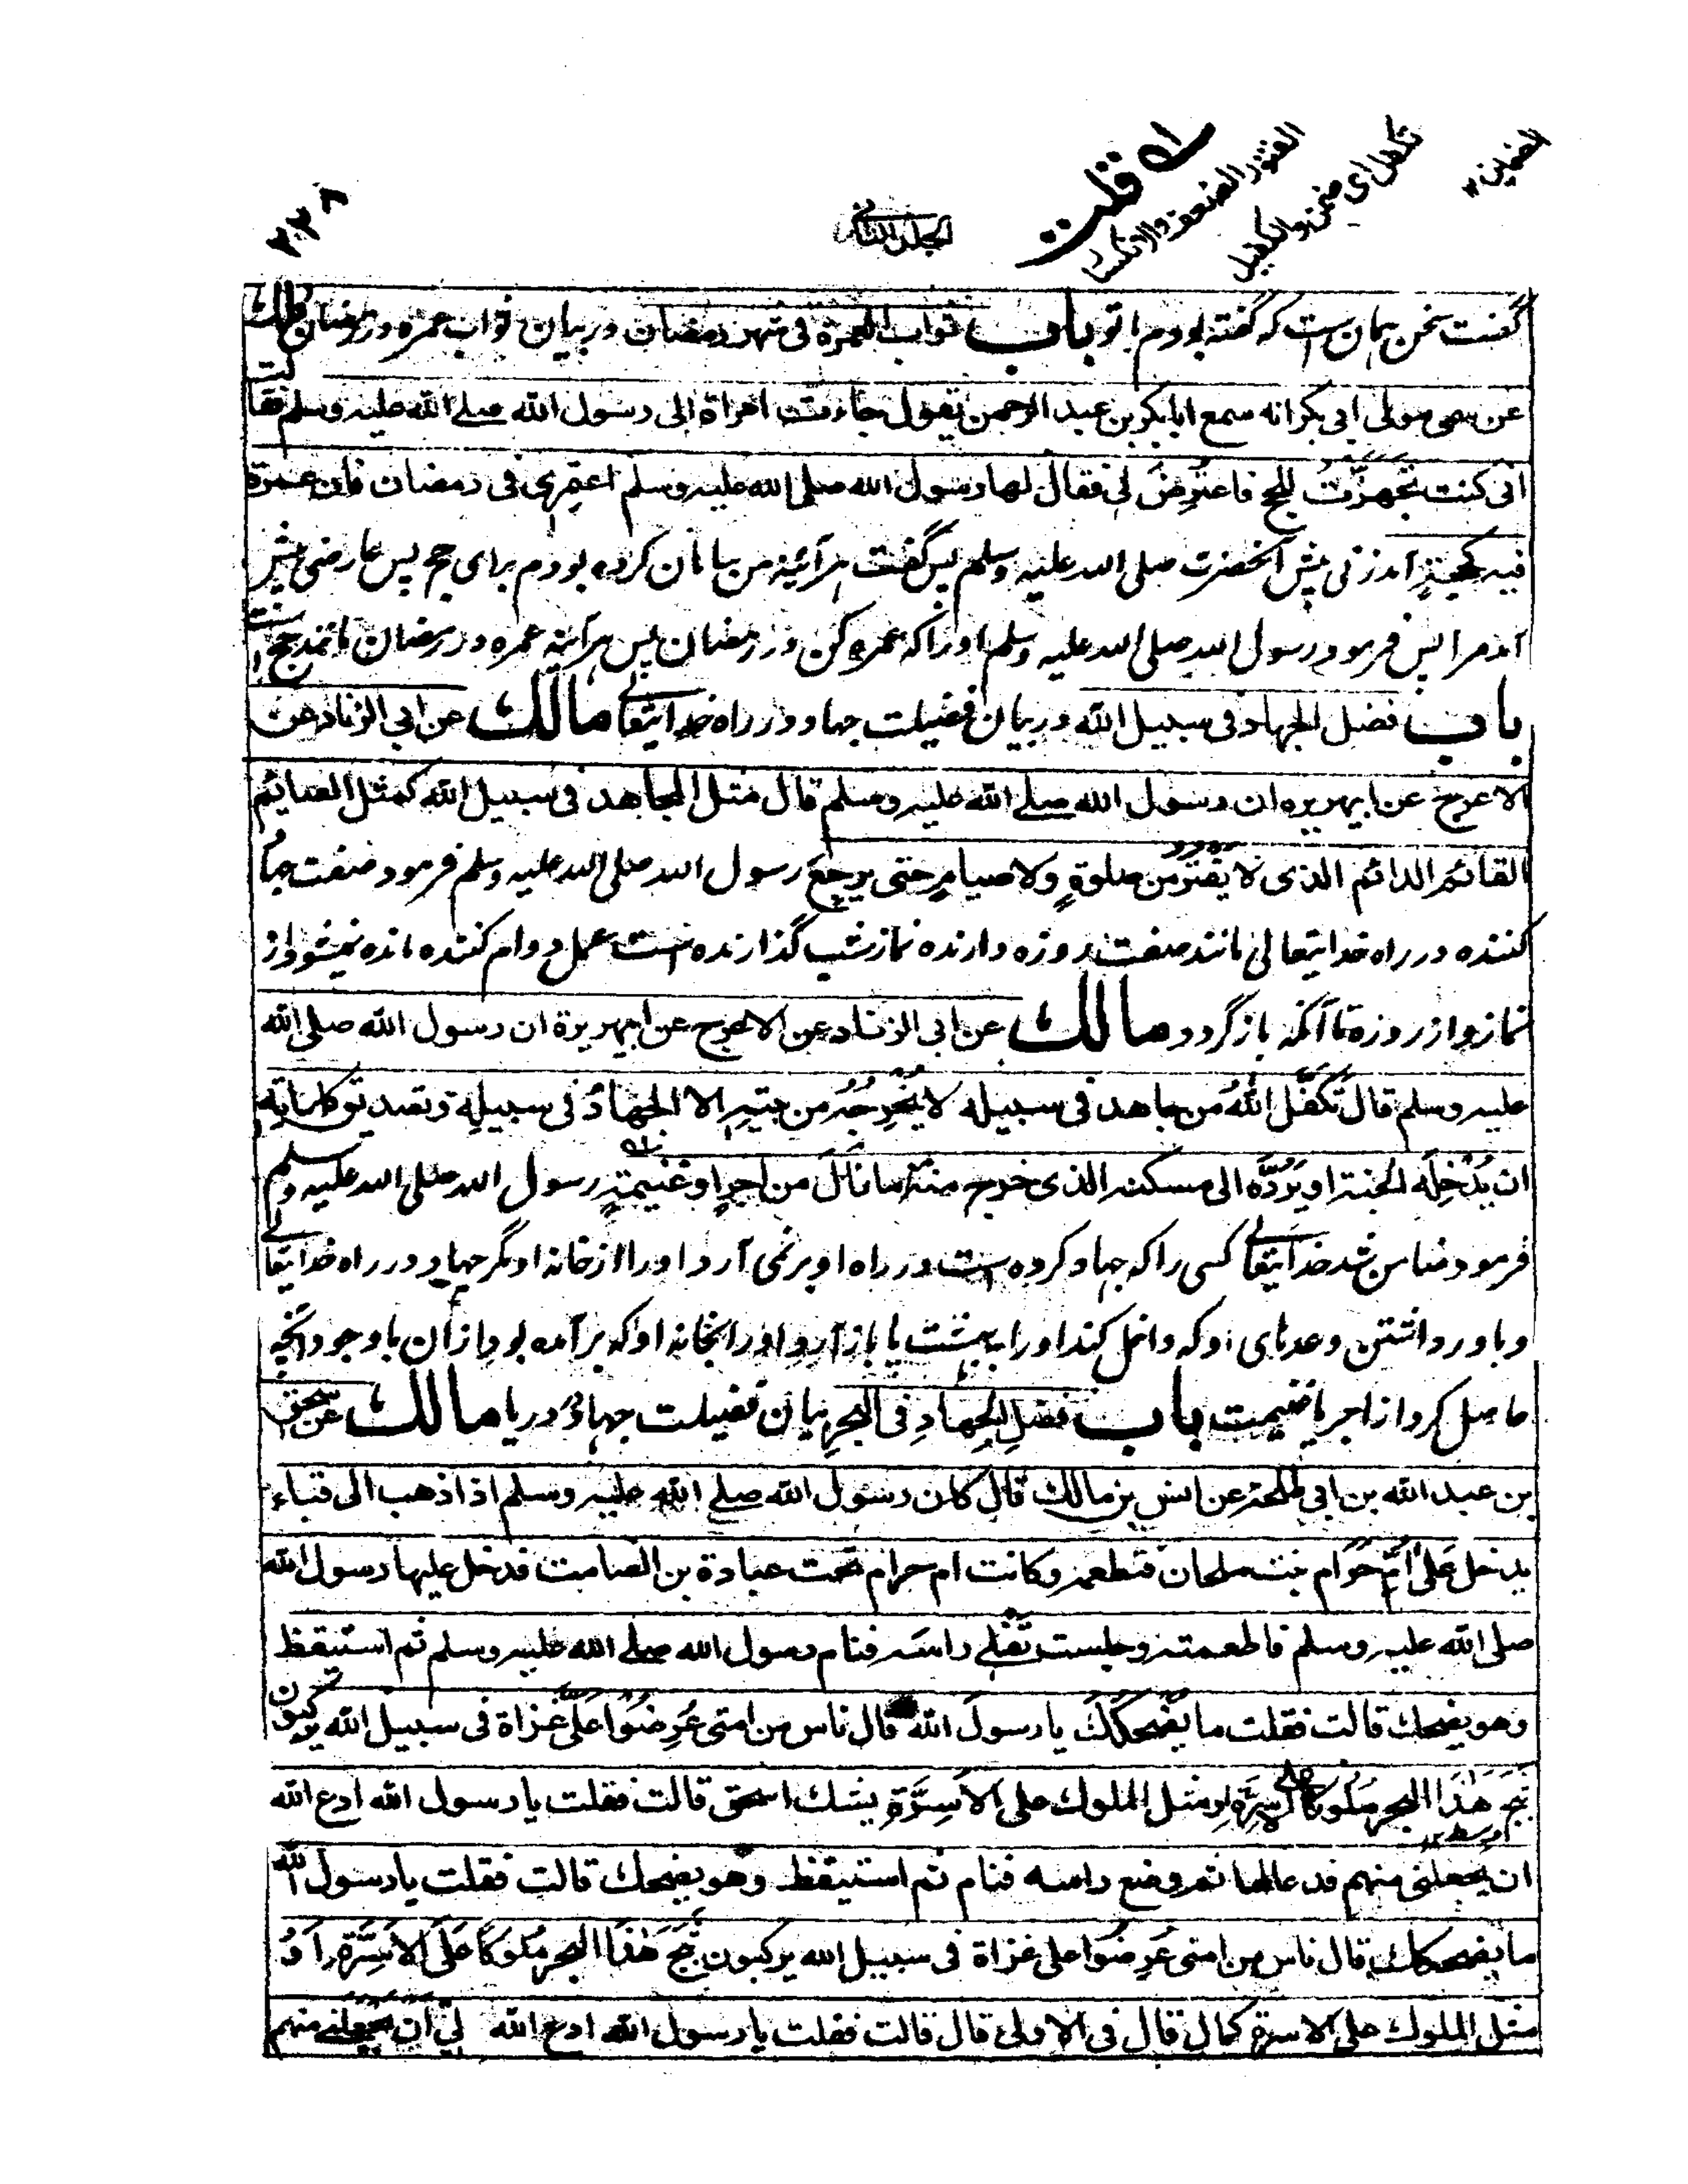 الضمين ۱۲
تكفل اى ضمن والكفيل
الفتور الضعف والانكسار
قلت
الجلد الثانى
۲۳۸
گفت سخن همان ست که گفته بودم با تو باب ثواب العمرة فى شهر رمضان در بيان ثواب عمره در رمضان مالك
عن سمى مولى ابى بكر انه سمع ابا بكر بن عبد الرحمن يقول جاءت امراة الى رسول الله صلے الله عليه وسلم فقالت
انى كنت تَجَهَّزْتُ للحج فاعتُرِضَ لى فقال لها رسول الله صلى الله عليه وسلم اعتمِرى فى رمضان فان عمرة
فيه كحجةٍ آمد زنى پيش آنحضرت صلى الله عليه وسلم پس گفت هرآئينه من سامان کرده بودم براى حج پس عارضى پيش
آمد مرا پس فرمود رسول الله صلى الله عليه وسلم او را که عمره کن در رمضان پس هرآئينه عمره در رمضان مانند حج است
باب فضل الجهاد فى سبيل الله در بيان فضيلت جهاد در راه خدايتعالے مالك عن ابى الزناد عن
الاعرج عن ابيهريره ان رسول الله صلے الله عليه وسلم قال مثل المجاهد فى سبيل الله كمثل الصائم
القائم الدائم الذى لا يفتُرُ من صلوةٍ ولا صيامٍ حتى يرجعَ رسول الله صلى الله عليه وسلم فرمود صفت جهاد
کننده در راه خدايتعالى مانند صفت روزه دارنده نماز شب گذارنده است عمل دوام کننده مانده نميشود از
نماز و از روزه تا آنکه باز گردد مالك عن ابى الزناد عن الاعرج عن ابيهريرة ان رسول الله صلى الله
عليه وسلم قال تَكَفَّلَ اللهُ من جاهد فى سبيله لا يُخْرِجُهُ من بيتِهِ الا الجهادُ فى سبيلِهِ وتصديق كلماتِهِ
ان يُدْخِلَه الجنة او يَرُدَّه الى مسكنه الذى خرج منه مع ما نالَ من اجرٍ او غنيمةٍ رسول الله صلى الله عليه وسلم
فرمود ضامن شد خدايتعالے کسى را که جهاد کرده است در راه او بر نمى آرد او را از خانه او مگر جهاد در راه خدايتعالے
و باور داشتن وعدهاى او که داخل کند او را ببهشت يا باز آرد او را بخانه او که برآمده بود ازان با وجود آنچه
حاصل کرد از اجر يا غنيمت باب فضلِ الجِهادِ فى البحرِ بيان فضيلت جهاد در دريا مالك عن اسحق
بن عبد الله بن ابى طلحة عن انس بن مالك قال كان رسول الله صلے الله عليه وسلم اذا ذهب الى قباء
يدخل عَلىٰ اُمِّ حَرَام بنت ملحان فتطعمه وكانت ام حرام تحت عبادة بن الصامت فدخل عليها رسول الله
صلى الله عليه وسلم فاطعمته وجلست تَفْلے راسَه فنام رسول الله صلے الله عليه وسلم ثم استيقظ
وهو يضحك قالت فقلت ما يُضْحِكُكَ يا رسولَ الله قال ناس من امتى عُرِضُوا عَلَىَّ غزاة فى سبيل الله يركبون
ثَبَجَ هٰذَا البحر مُلُوكًا على الاسِرَّةِ او مثل الملوك على الاَسِرَّةِ يشك اسحق قالت فقلت يا رسول الله ادع الله
ان يجعلنى منهم فدعا لها ثم وضع راسه فنام ثم استيقظ وهو يضحك قالت فقلت يا رسول الله
ما يضحكك قال ناس من امتى عُرِضُوا على غزاة فى سبيل الله يركبون ثَبَجَ هٰذَا البحر مُلُوكًا عَلَى الاَسِرَّةِ اَوْ
مثل الملوك على الاسرة كمال قال فى الاولىٰ قال قالت فقلت يا رسول الله ادع الله لى ان يجعلنے منهم